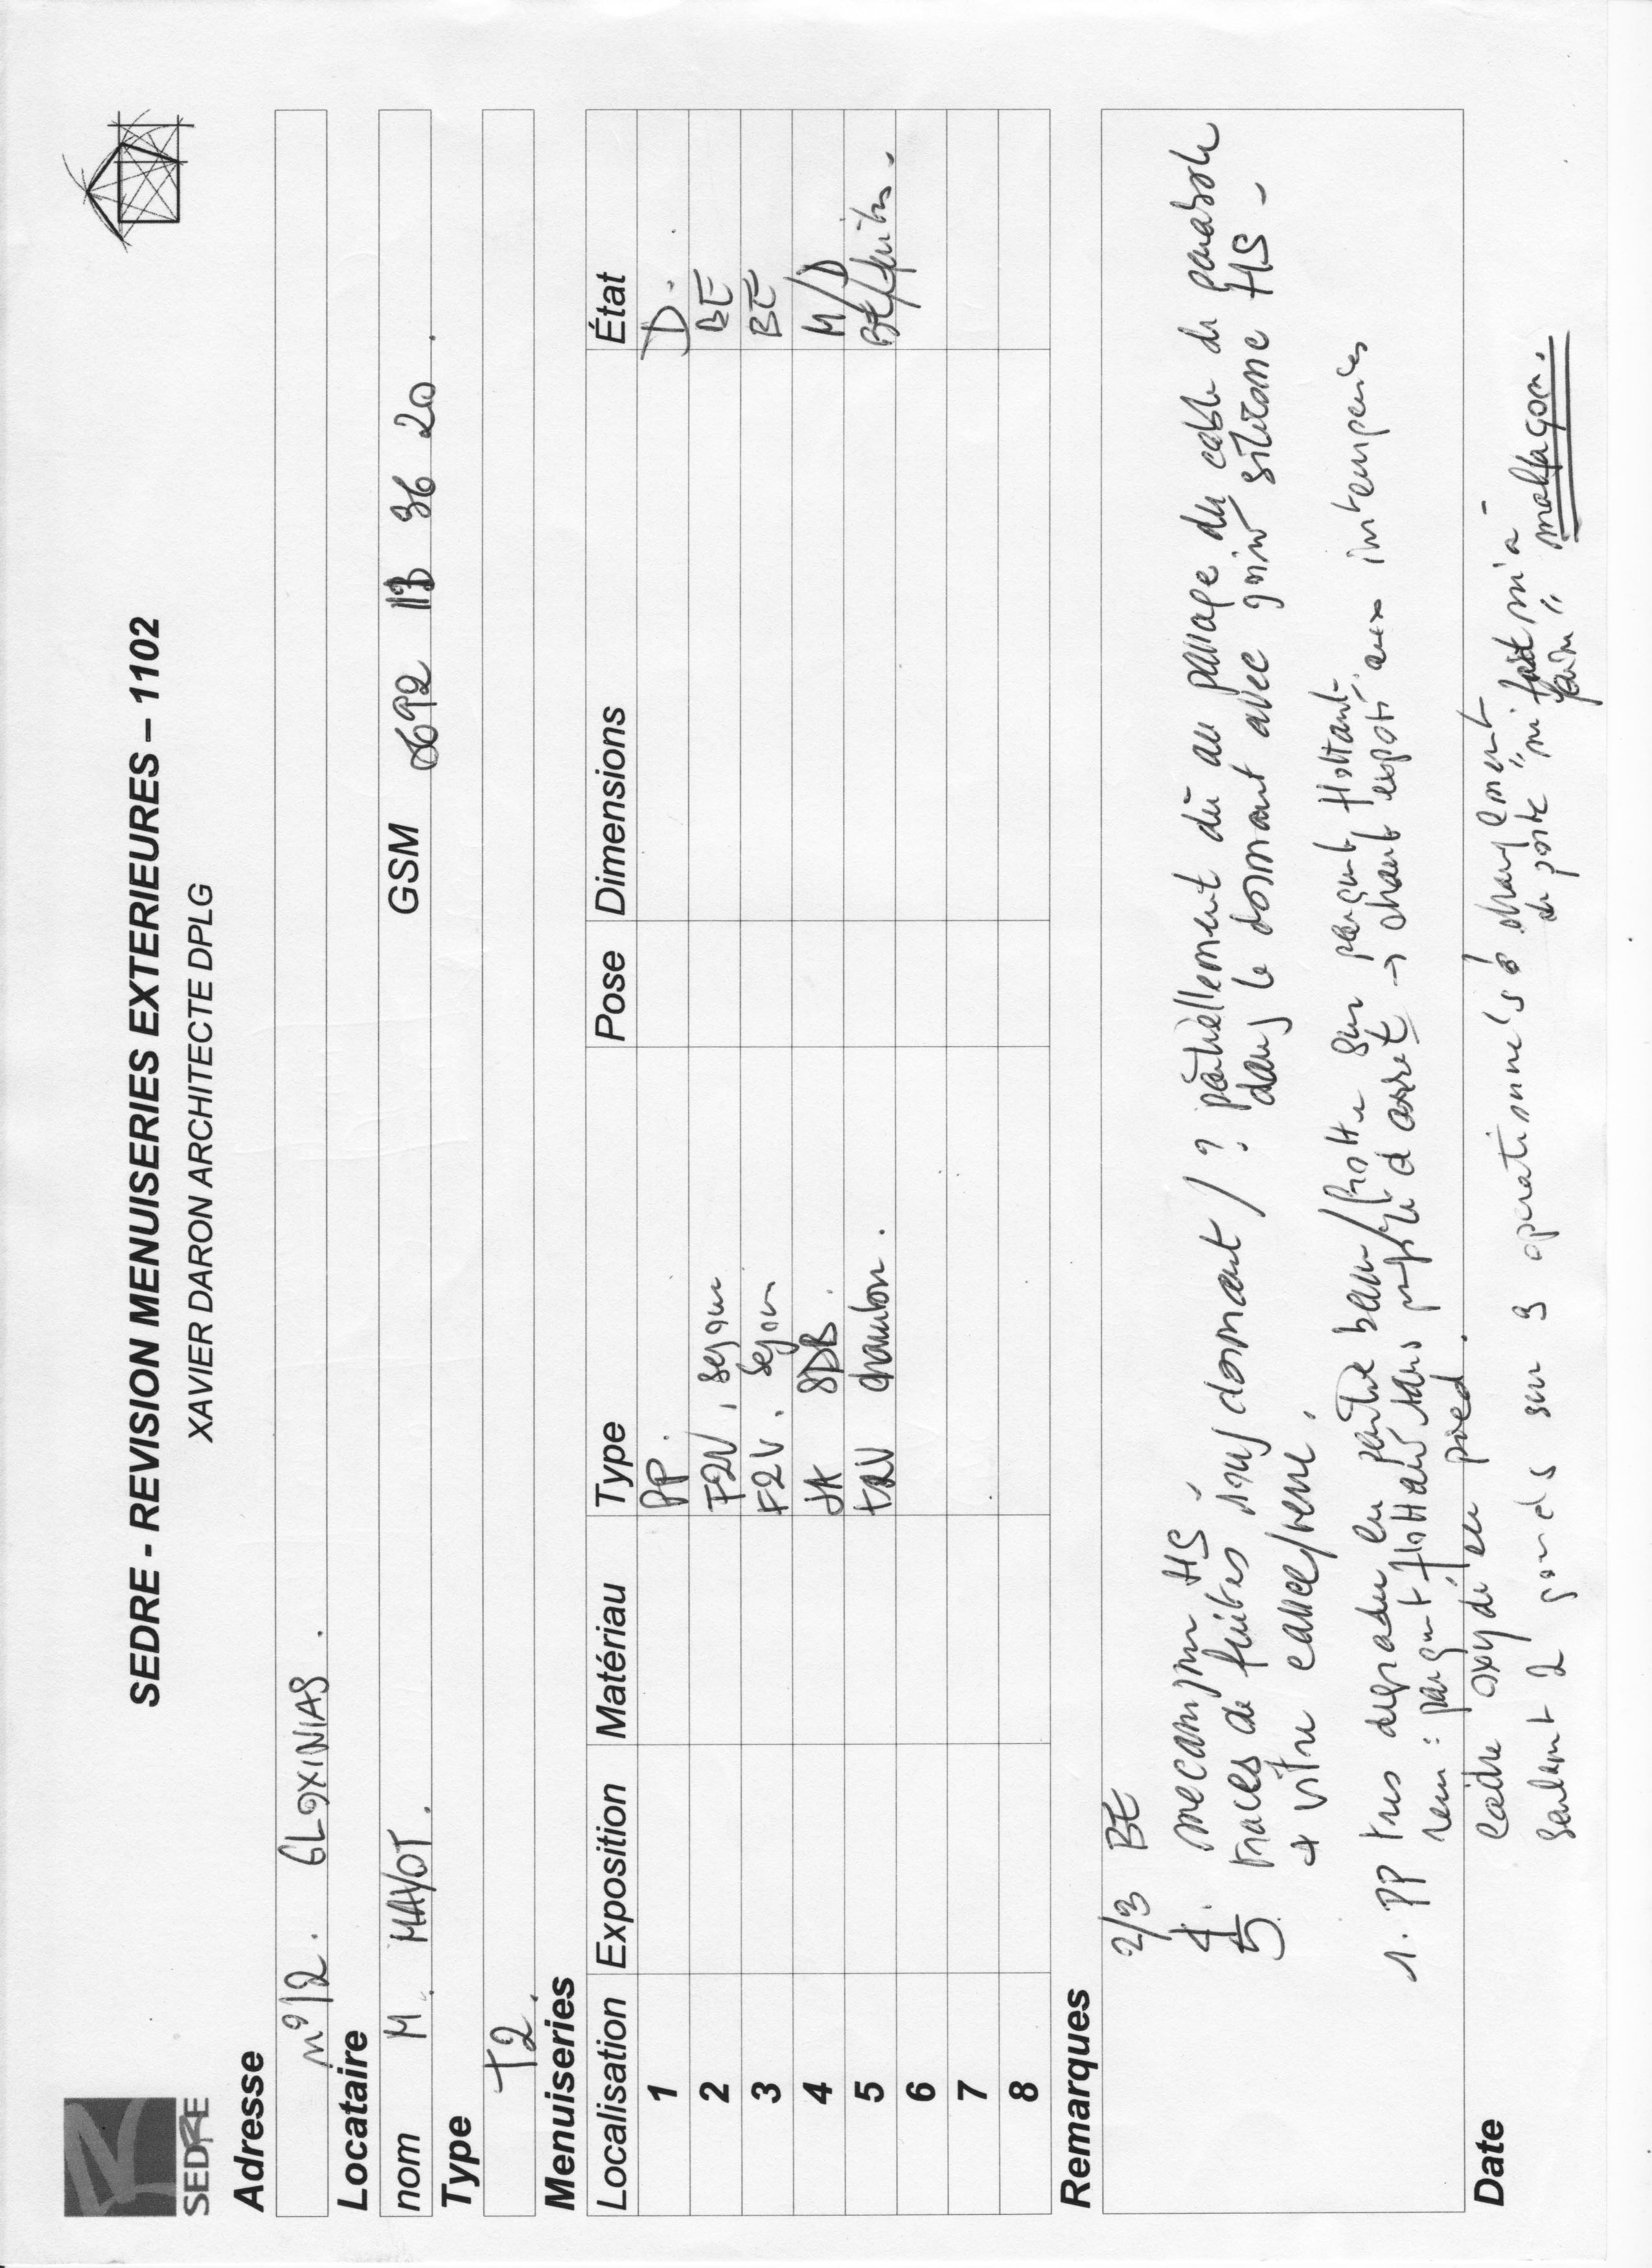 SEDRE
SEDRE - REVISION MENUISERIES EXTERIEURES – 1102
XAVIER DARON ARCHITECTE DPLG
Adresse
n° 12. GLOXINIAS.
Locataire
nom M. MAYOT. GSM 0692 36 20.
Type
T2.
Menuiseries
Localisation Exposition Matériau Type Pose Dimensions État
1 PP. D.
2 F2V, sejour BE
3 F2V. sejour BE
4 JA SDB. M/D
5 chambre. BE/fuites.
6
7
8
Remarques
2/3 BE
4. mecanisme HS
5 traces de fuites sous dormant / ? partiellement dû au passage du cable de parabole
dans le dormant avec joint silicone HS -
+ vitre cassée/
1. PP tres degradee en partie basse/frotte sur parquet flottant.
rem : parquet flottant sans profilé d'arret → chant exposé aux intemperies
Cadre oxydé en pied.
seulement 2 gonds sur 3 operationnels changement
de porte "ni fait ni à
faire" malfaçon.
Date